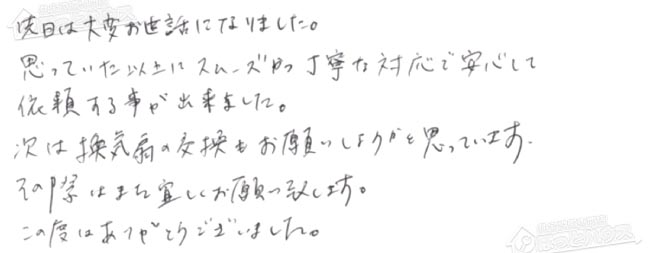 先日は大変お世話になりました。
思っていた以上にスムーズかつ丁寧な対応で安心して
依頼する事が出来ました。
次は換気扇の交換もお願いしようかと思っています.
その際はまた宜しくお願い致します。
この度はありがとうございました。